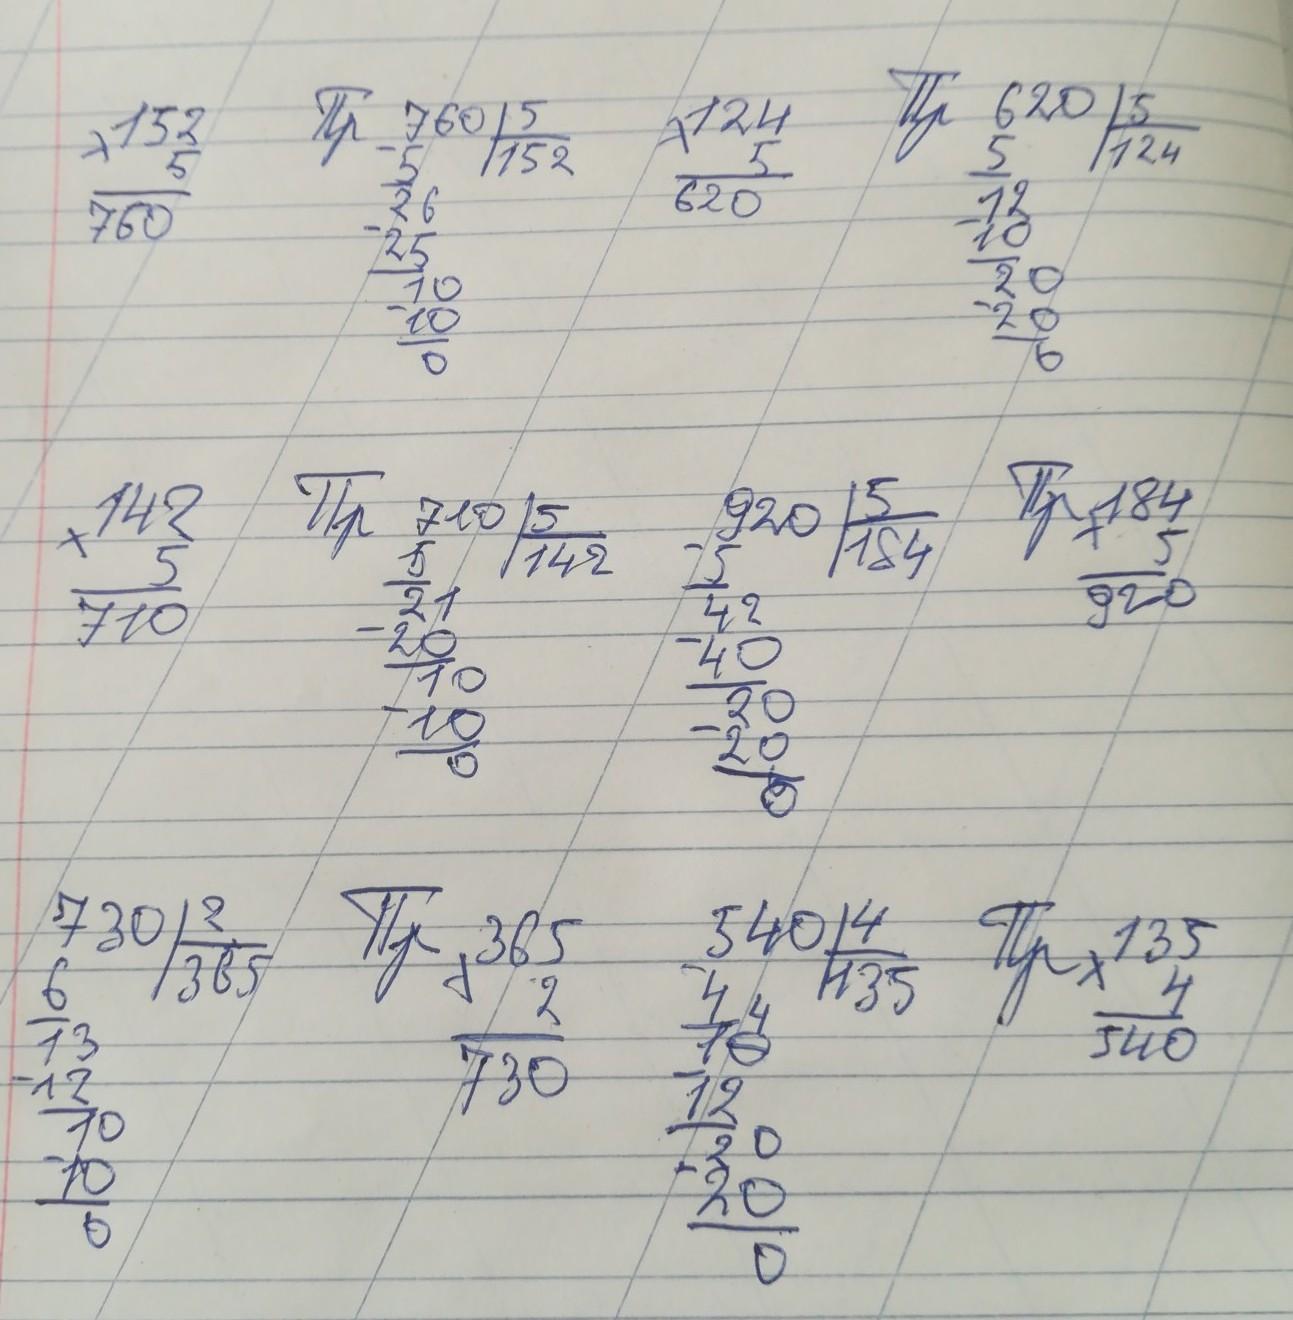 ×152 Пр 760|5 ×124 Пр 620|5
5 -5 152 5 5 124
760 26 620 12
-25 -10
10 20
-10 -20
0 0
×142 Пр 710|5 920|5 Пр ×184
5 5 142 -5 184 5
710 21 42 920
-20 -40
10 20
-10 -20
0 0
730|2 Пр ×365 540|4 Пр ×135
6 365 2 -4 135 4
13 730 14 540
-12 -12
10 20
-10 -20
0 0